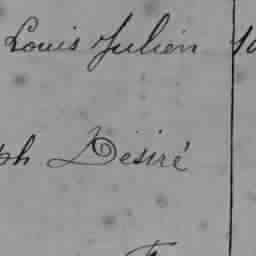 Louis Julien
ph Désiré